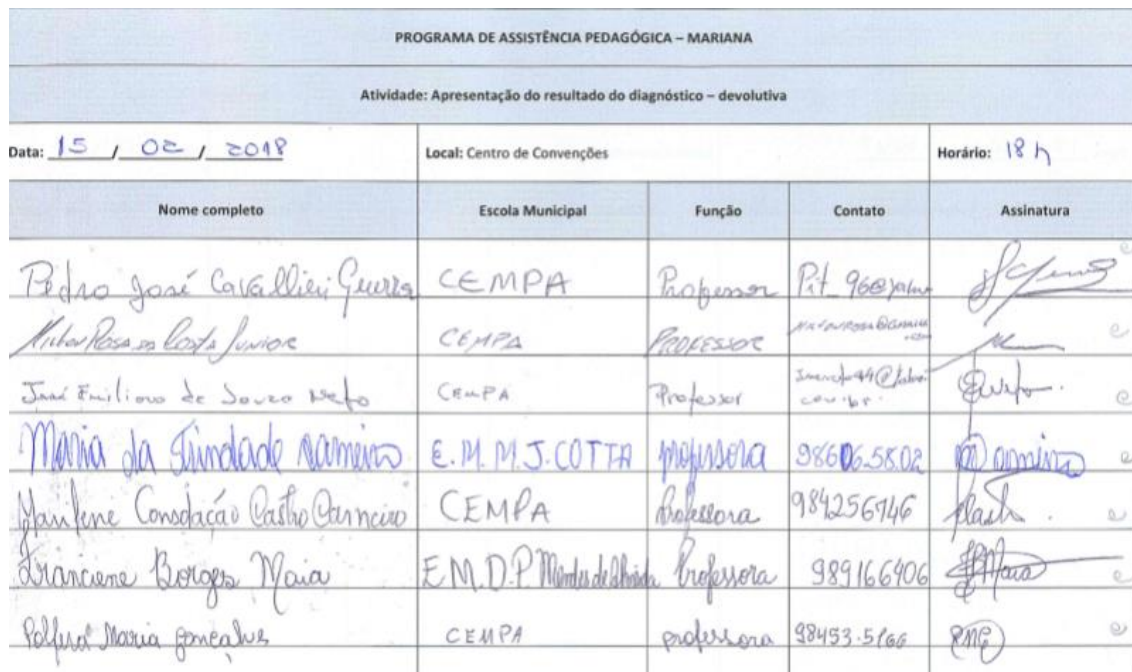 PROGRAMA DE ASSISTÊNCIA PEDAGÓGICA – MARIANA
Atividade: Apresentação do resultado do diagnóstico – devolutiva
Data: 15 / 02 / 2018 Local: Centro de Convenções Horário: 18 h
Nome completo Escola Municipal Função Contato Assinatura
Pedro José Cavallieri Guerra CEMPA Professor
Rosa da Costa Junior CEMPA PROFESSOR
José Emiliano de Souza Neto CEMPA Professor
Maria da Trindade E. M. M. J. COTTA professora 98606.5802
Consolação Castro Carneiro CEMPA Professora 984256746
Franciene Borges Maia E M. D. P. Mendes de Almeida Professora 989166406 Maia
Maria Gonçalves CEMPA professora 98453-5166 RMG